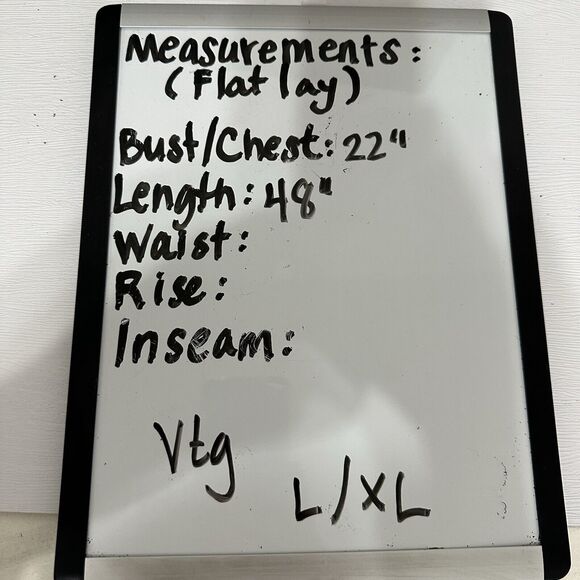 Measurements:
(Flat lay)
Bust/Chest: 22"
Length: 48"
Waist:
Rise:
Inseam:
Vtg
L/XL